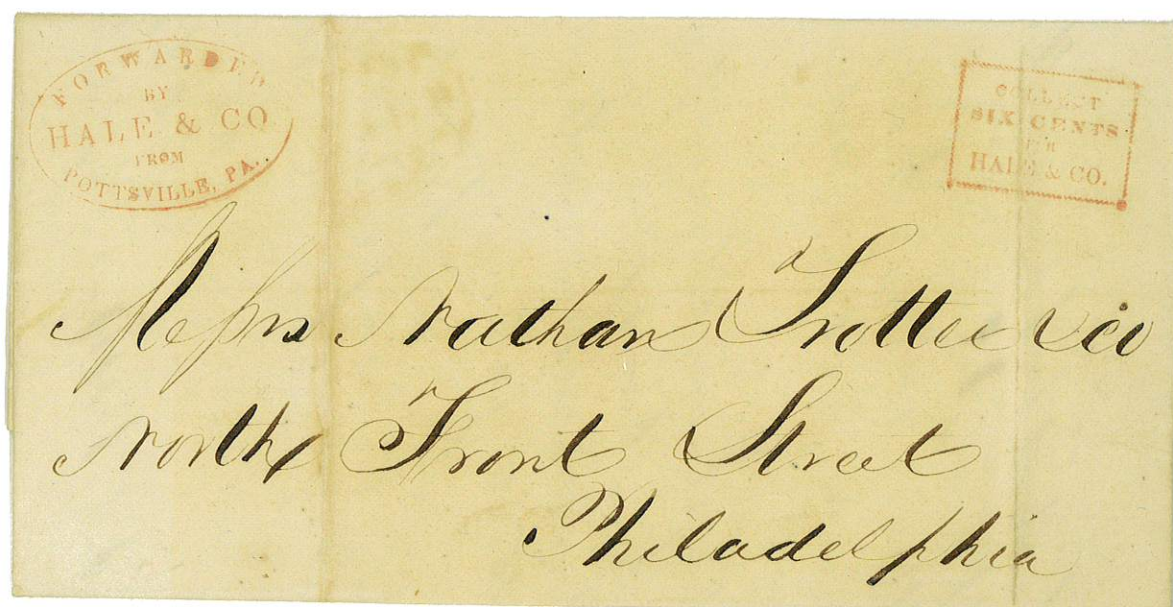 FORWARDED
BY
HALE & CO
FROM
POTTSVILLE, PA.
COLLECT
SIX CENTS
FOR
HALE & CO.
Messrs Nathan Trotter & Co
North Front Street
Philadelphia